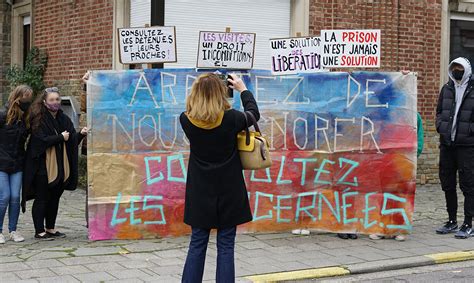 CONSULTEZ
LES DÉTENU.ES
ET LEURS
PROCHES !
LES VISITES,
UN DROIT
INCONDITIONN
EL
UNE SOLUTION :
LIBÉRATION
LA PRISON
N'EST JAMAIS
UNE SOLUTION
ARRÊTEZ DE
NOUS IGNORER
CONSULTEZ
LES CONCERNÉ.E.S